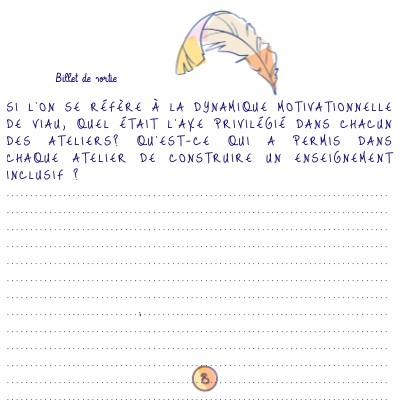 Billet de sortie
SI L'ON SE RÉFÈRE À LA DYNAMIQUE MOTIVATIONNELLE
DE VIAU, QUEL ÉTAIT L'AXE PRIVILÉGIÉ DANS CHACUN
DES ATELIERS? QU'EST-CE QUI A PERMIS DANS
CHAQUE ATELIER DE CONSTRUIRE UN ENSEIGNEMENT
INCLUSIF ?
8